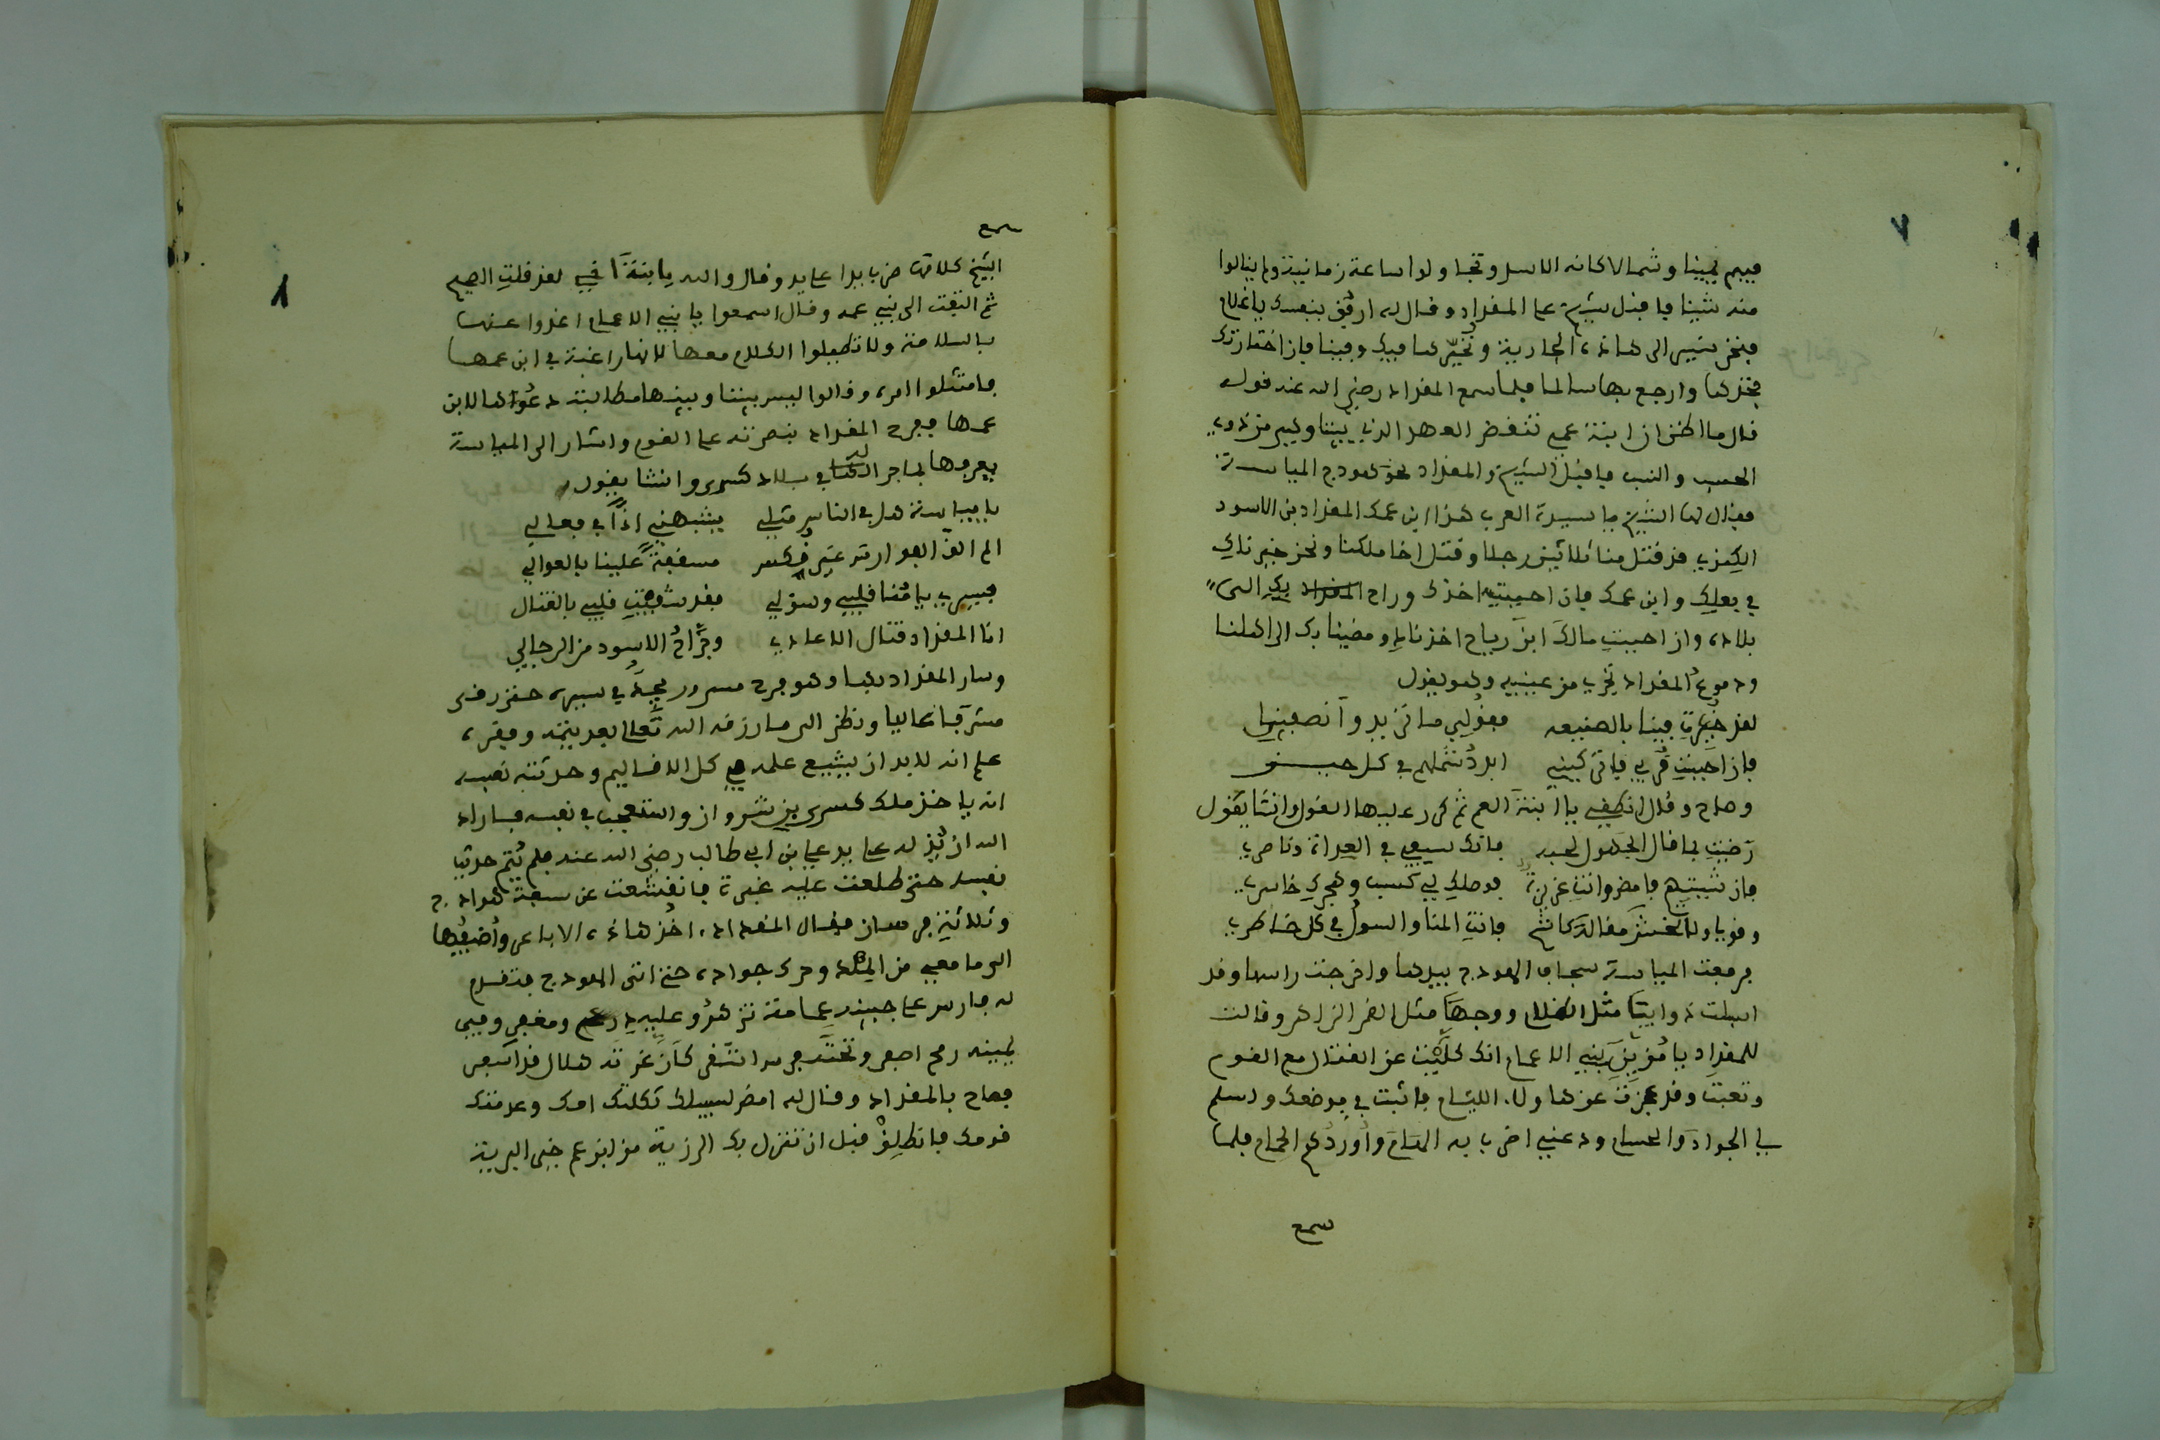 ٧
فيهم يمينا وشمالا كانه الاسد وتجاولوا ساعة زمانية ولم ينالوا
منه شيئا فاقبل الشيخ على المقداد وقال له ارفق بنفسك يا غلام
فنحن نسير الى هاذه الجارية ونخيّرها فيك وفينا فان اختارتك
فخذها وارجع بها سالما فلما سمع المقداد رضي الله عنه قوله
قال ما اظن ان ابنة عمي تنقض العهد الذي بيننا وهي من ذوي
الحسب والنسب فاقبل الشيخ والمقداد نحو هودج المياسة
فقال لها الشيخ يا سيدة العرب هذا ابن عمك المقداد بن الاسود
الكندي قد قتل منا ثلاثين رجلا وقتل اخا ملكنا ونحن خيرناك
في بعلك وابن عمك فان احببتيه اخذك وراح المقداد بك الى
بلاده وان احببت مالك ابن رياح اخذناك ومضينا بك الى اهلنا
ودموع المقداد تجري من عينيه وهو يقول
لقد خيرت فينا بالصنيعه فقولي ما تريد وانصفينا
فان احببت قربي فاتركيني ابدد شملهم في كل حين
وصاح وقال انطقي يا ابنة العم ثم كرر عليها القول وانشا يقول
رضيت بما قال الجهول لحبه فاتك سيفي في العداة وناصري
فان شيتهم فامضي وانت عزيزة فوصلك لي كسب وهجرك خاسري
وقوليا ولا تخش مقالة كاشح فانت المنا والسول في كل خاطري
فرفعت المياسة سجاف الهودج بيدها واخرجت راسها وقد
اسبلت ذوايبا مثل الظلام ووجها مثل القمر الزاهر وقالت
للمقداد يا مزين بني الاعمام انك كلّيت عن القتال مع القوم
وتعبت وقد عجزت عن هاولاء الليام فاثبت في موضعك وسلم
لي الجواد والحسام ودعني اضرب به الهام واوردهم الحمام فلما
سمع
سمع
٨
الشيخ كلامها ضرب يدا على يد وقال والله يا ابنة اخي لقد قلت الصحيح
ثم التفت الى بني عمه وقال اسمعوا يا بني الاعمام اغدوا عنها
بالسلامة ولا تطيلوا الكلام معها لانها راغبة في ابن عمها
فامتثلوا امره وقالوا ليس بيننا وبينها مطالبة دعوها لابن
عمها ففرح المقداد بنصرته على القوم واشار الى المياسة
يعرفها بما جرا له في بلاد كسرى وانشا يقول
يا مياسة هل في الناس مثلي يشبهني اذا في فعالي
الم الق الفوارس عند كسرى مسفقة علينا بالعوالي
فسيري يا منا قلبي وسولي فقد شفيت قلبي بالقتال
انا المقداد قتال الاعادي وجراح الاسود من الرجالي
وسار المقداد بها وهو فرح مسرور مجد في سيره حتى رقى
مشرقا عاليا ونظر الى ما رزقه الله تعلى بعد يتمه وفقره
علم انه لا بد ان يشيع علمه في كل الاقاليم وحدثته نفسه
انه ياخذ ملك كسرى بن شروان واستعجب في نفسه فاراد
الله ان يذله على يد علي بن ابي طالب رضي الله عنه فلم يتم حديث
نفسه حتى طلعت عليه غبرة فانقشعت عن سبعة هوادج
وثلاثين فرسان فقال المقداد اخذ هاذه الاباعر واضيفها
الى ما معي من الملك وحرك جواده حتى اتى الهودج فتقدم
له فارس على جبينه عمامة تزهر وعليه درع ومغفر وفي
يمينه رمح اصفر وتحته فرس اشقر كان غرته هلال قد اسفر
فصاح بالمقداد وقال له امض لسبيلك ثكلتك امك وعدمتك
قومك فانطلق قبل ان تنزل بك الرزية من ابن عم خير البرية